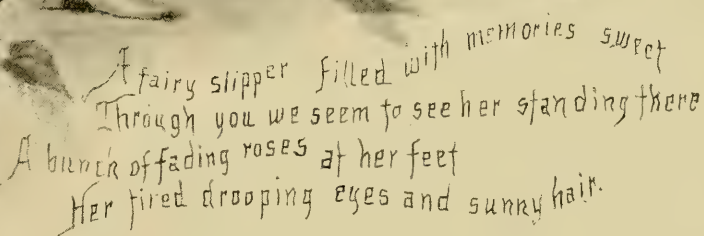 A fairy slipper filled with memories sweet
Through you we seem to see her standing there
A bunch of fading roses at her feet
Her tired drooping eyes and sunny hair.